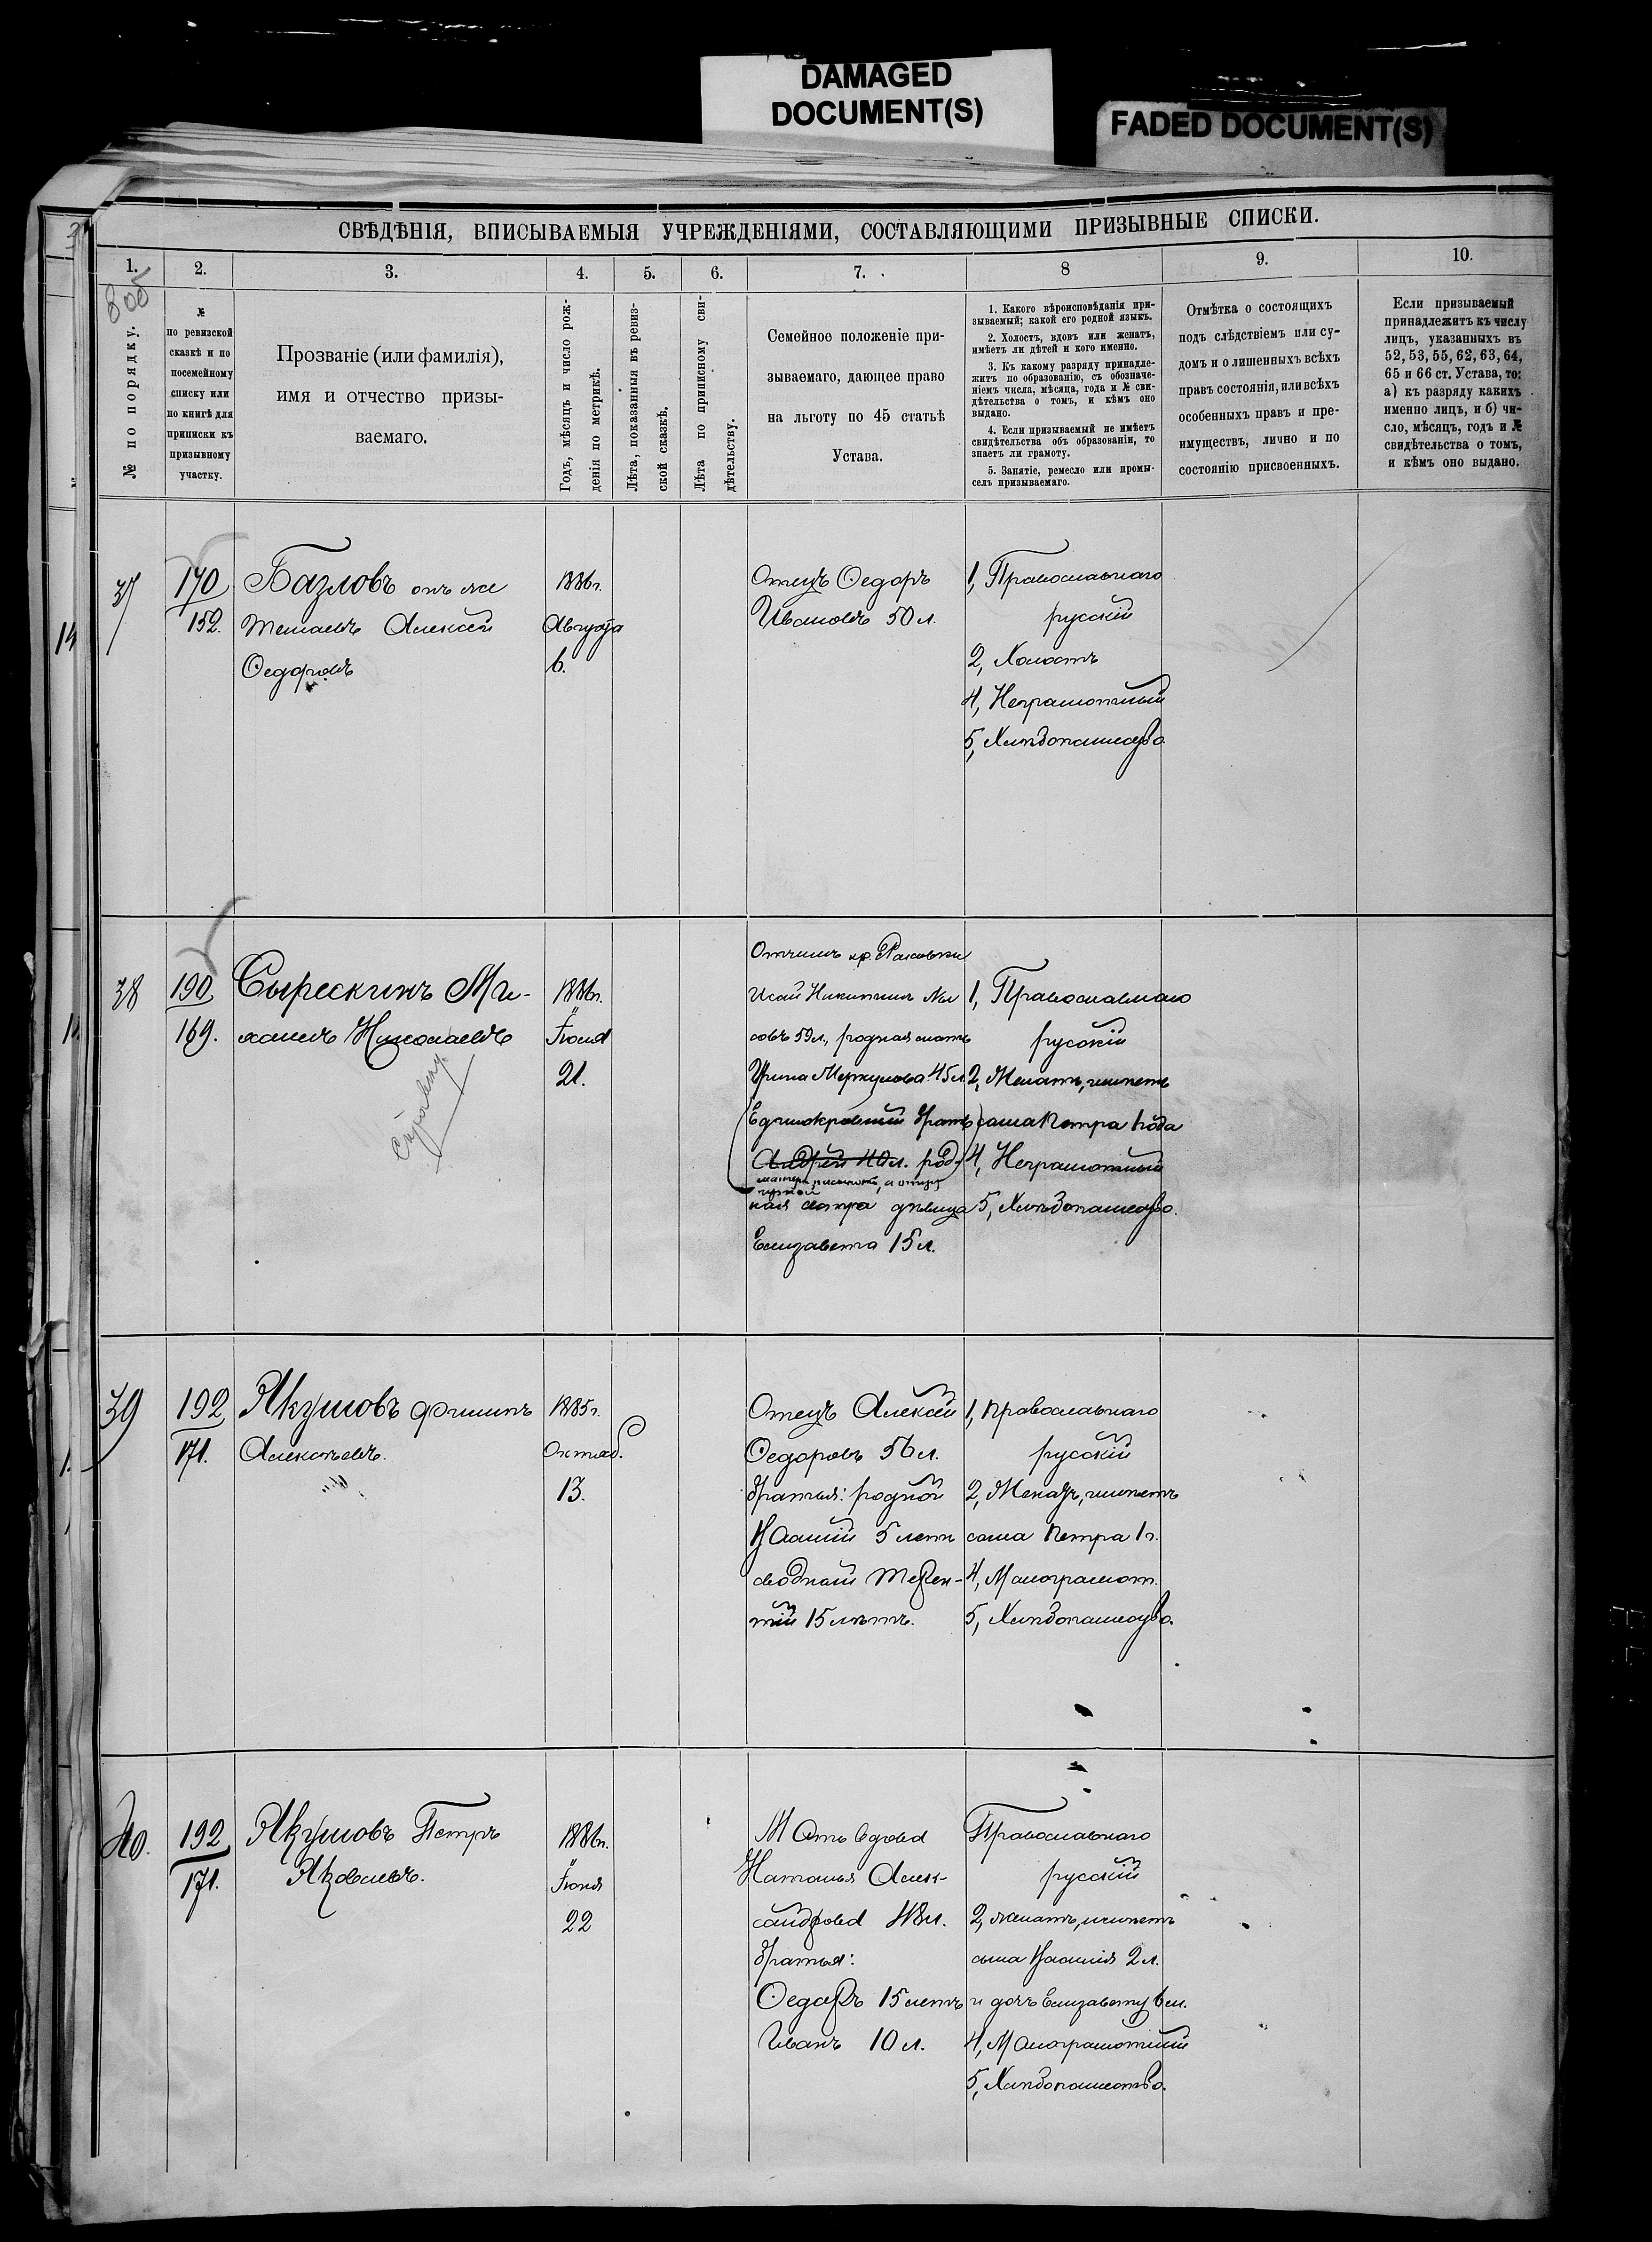 DAMAGED
DOCUMENT(S)
FADED DOCUMENT(S)
СВѢДѢНІЯ, ВПИСЫВАЕМЫЯ УЧРЕЖДЕНІЯМИ, СОСТАВЛЯЮЩИМИ ПРИЗЫВНЫЕ СПИСКИ.
1.
2.
3.
4.
5.
6.
7.
8
9.
10.
№ по порядку.
№
по ревизской
сказкѣ и по
посемейному
списку или
по книгѣ для
приписки къ
призывному
участку.
Прозваніе (или фамилія),
имя и отчество призы-
ваемаго.
Годъ, мѣсяцъ и число рож-
денія по метрикѣ.
Лѣта, показанныя въ ревиз-
ской сказкѣ.
Лѣта по приписному сви-
дѣтельству.
Семейное положеніе при-
зываемаго, дающее право
на льготу по 45 статьѣ
Устава.
1. Какого вѣроисповѣданія при-
зываемый; какой его родной языкъ.
2. Холостъ, вдовъ или женатъ,
имѣетъ ли дѣтей и кого именно.
3. Къ какому разряду принадле-
житъ по образованію, съ обозначе-
ніемъ числа, мѣсяца, года и № сви-
дѣтельства о томъ, и кѣмъ оно
выдано.
4. Если призываемый не имѣетъ
свидѣтельства объ образованіи, то
знаетъ ли грамоту.
5. Занятіе, ремесло или промы-
селъ призываемаго.
Отмѣтка о состоящихъ
подъ слѣдствіемъ или су-
домъ и о лишенныхъ всѣхъ
правъ состоянія, или всѣхъ
особенныхъ правъ и пре-
имуществъ, лично и по
состоянію присвоенныхъ.
Если призываемый
принадлежитъ къ числу
лицъ, указанныхъ въ
52, 53, 55, 62, 63, 64,
65 и 66 ст. Устава, то:
а) къ разряду какихъ
именно лицъ, и б) чи-
сло, мѣсяцъ, годъ и №
свидѣтельства о томъ,
и кѣмъ оно выдано.
37
170
152.
Базловъ онъ же
Алексѣй
Ѳедоровъ
1886 г.
Августа
6.
Отецъ Ѳедоръ
Ивановъ 50 л.
1, Православнаго
русскій
2, Холостъ
4, Неграмотный
5, Хлѣбопашество.
38
190
169.
Сырескинъ Ми-
хаилъ Николаевъ
1886 г.
Іюня
21.
Отчимъ кр.
Исай Никитинъ
59 л., родная мать
Ирина Меркулова 45 л.
Единокровный братъ
Андрей 40 л. род-
ная сестра дѣвица
Елизавета 15 л.
1, Православнаго
русскій
2, Женатъ, имѣетъ
сына Петра 1 года
4, Неграмотный
5, Хлѣбопашество.
39
192
171.
Якумовъ Филипъ
Алексѣевъ.
1885 г.
Октяб.
13.
Отецъ Алексѣй
Ѳедоровъ 56 л.
братья: родной
5 летъ
сводный Терен-
тій 15 лѣтъ.
1, Православнаго
русскій
2, Женатъ, имѣетъ
сына Петра 1 г.
4, Малограмот.
5, Хлѣбопашество.
40.
192
171.
Якумовъ Петръ
Яковлевъ.
1886 г.
Іюня
22
Мать вдова
Наталья Алек-
сандрова 48 л.
братья:
Ѳедоръ 15 летъ
Иванъ 10 л.
Православнаго
русскій
2, женатъ, имѣетъ
сына 2 л.
и дочь Елизавету
4, Малограмотный
5, Хлѣбопашество.